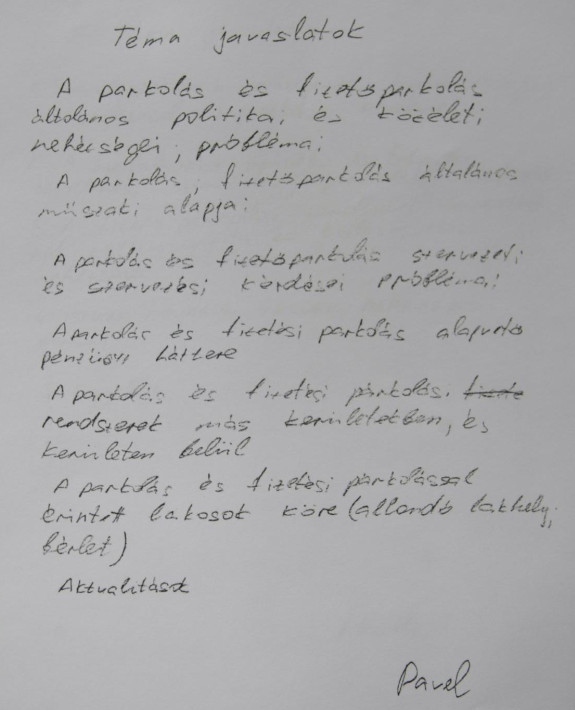 Téma javaslatok
A parkolás és fizetőparkolás
általános politikai és közéleti
nehézségei, problémai
A parkolás, fizetőparkolás általános
műszaki alapjai
A parkolás és fizetőparkolás szervezeti
és szervezési kérdései problémai
A parkolás és fizetési parkolás alapvető
pénzügyi háttere
A parkolás és fizetési parkolási fizete
rendszerek más kerületekben, és
kerületen belül
A parkolás és fizetési parkolással
érintett lakosok köre (allandó lakhely,
bérlet)
Aktualitások
Pavel